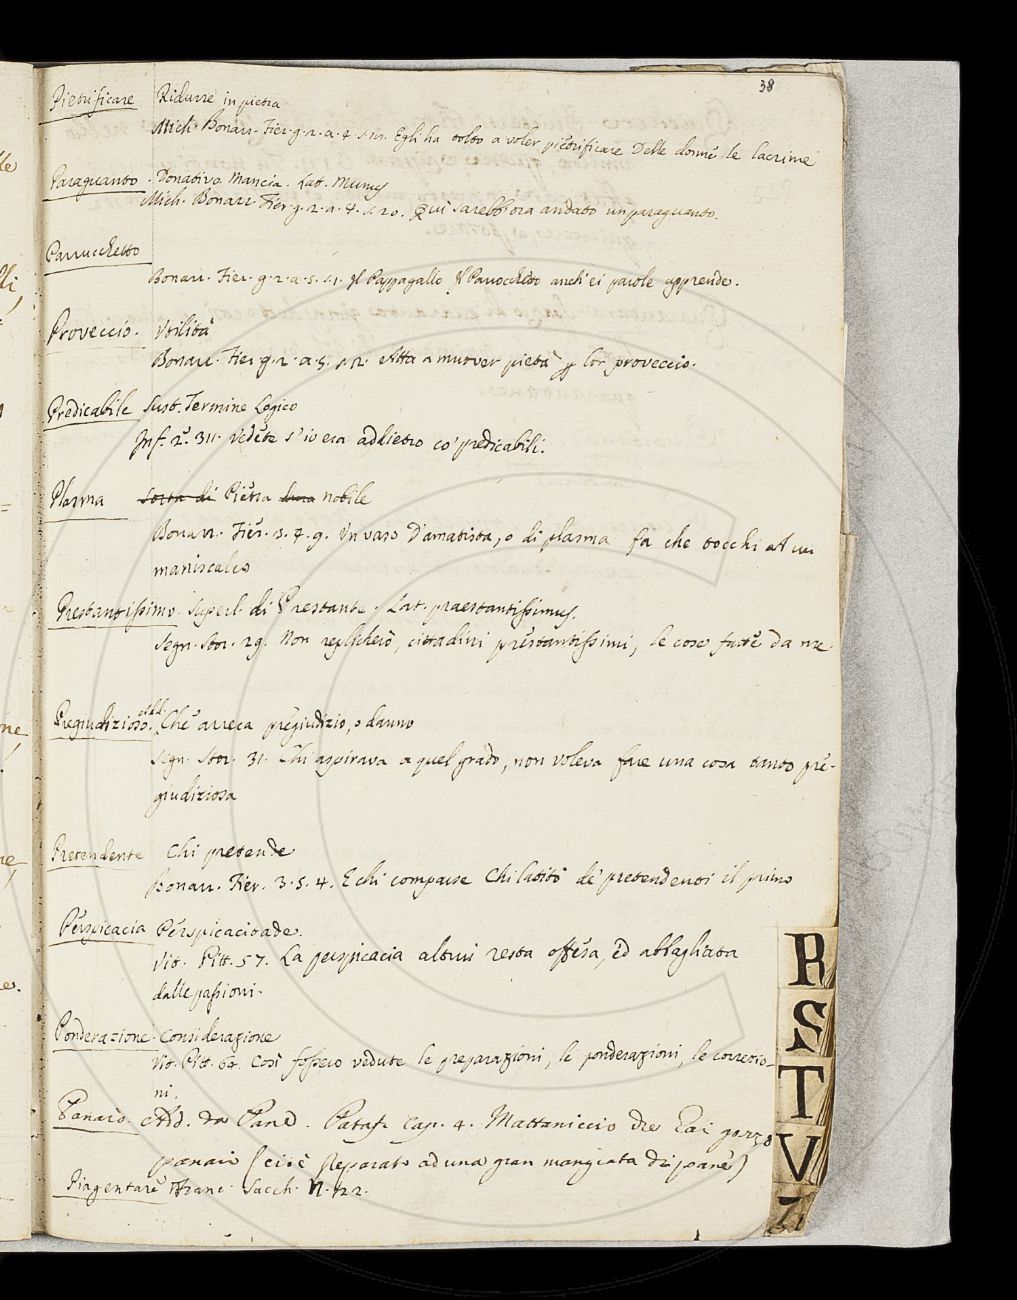 38
Pietrificare Ridurre in pietra
Mich. Bonarr. Fier. g. 2. a. 4. s. Egli ha tolto a voler pietrificare Delle donne le lacrime
Paraguanto. Donativo Mancia. Lat. Munus
Mich. Bonarr. Fier. g. 2. a. 4. s. 20. Qui sarebb'ora andato un paraguanto.
Parrucchetto
Bonarr. Fier. g. 2. a. 5. s. 1. Il Pappagallo Il Parrocchetto anch'ei parole apprende.
Proveccio. Utilità
Bonarr. Fier. g. 2. a. 5. s. Atta a muover pietà lor proveccio.
Predicabile Sust. Termine Logico
Inf. 2.a 311. vedete s'io era addietro co' predicabili.
Plasma Sorta di Pietra dura nobile
Bonarr. Fier. 3. 4. 9. Un vaso D'amatista, o di plasma fa che tocchi ad un
maniscalco
Prestantissimo. Superl. di Prestante. Lat. praestantissimus.
Segn. Stor. 29. Non replicherò, cittadini prestantissimi, le cose fatte da me.
Pregiudizioso. Add. Che arreca pregiudizio, o danno
Segn. Stor. 31. Chi aspirava a quel grado, non voleva fare una cosa tanto pre-
giudiziosa
Pretendente Chi pretende
Bonarr. Fier. 3. 5. 4. E chi comparse Chi latitò de' pretendenti il primo
Perspicacia Perspicacitade.
Vit. Pitt. 57. La perspicacia altrui resta offesa, ed abbagliata
dalle passioni.
Ponderazione. Considerazione
Vit. Pitt. 64. Così fossero vedute le preparazioni, le ponderazioni, le correzio-
ni.
Panaio. Add. da Pane. Pataf. Cap. 4. Mattaniccio gozzo
panaio (cioè preparato ad una gran mangiata di pane)
Piagentare Franc. Sacch. N. 122.
R
S
T
V
Z